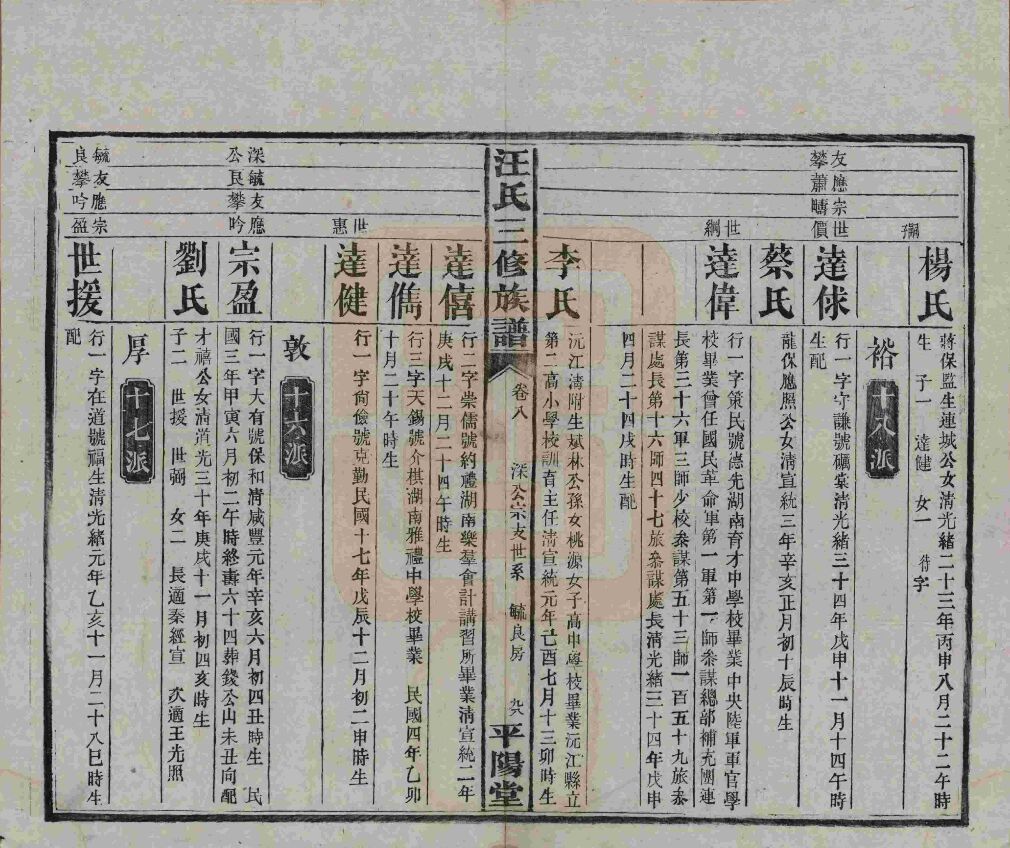 楊氏
蔣保監生連城公女淸光緒二十三年丙申八月二十二午時
生　子一　達健　女一　待字
裕　十八派
友應宗世
攀蕭疇價
達俅
行一字守謙號礪棠淸光緒三十四年戊申十一月十四午時
生配
蔡氏
龍保應照公女淸宣統三年辛亥正月初十辰時生
世綱
達偉
行一字策民號德先湖南育才中學校畢業中央陸軍軍官學
校畢業曾任國民革命軍第一軍第一師叅謀總部補充團連
長第三十六軍三師少校叅謀第五十三師一百五十九旅叅
謀處長第十六師四十七旅叅謀處長淸光緒三十四年戊申
四月二十四戌時生配
李氏
沅江淸附生斌林公孫女桃源女子高中學校畢業沅江縣立
第二高小學校訓育主任淸宣統元年己酉七月十三卯時生
汪氏三修族譜
卷八
深公宗支世系　毓良房
九八
平陽堂
達僖
行二字崇儒號約禮湖南樂羣會計講習所畢業淸宣統二年
庚戌十二月二十四午時生
達儁
行三字天錫號介棋湖南雅禮中學校畢業　民國四年乙卯
十月二十午時生
世惠
達健
行一字尙儉號克勤民國十七年戊辰十二月初二申時生
敦　十六派
深毓友應
公良攀吟
宗盈
行一字大有號保和淸咸豐元年辛亥六月初四丑時生　民
國三年甲寅六月初二午時終壽六十四葬錢公山未丑向配
劉氏
才禧公女淸道光三十年庚戌十一月初四亥時生
子二　世援　世弼　女二　長適秦經宣　次適王光照
厚　十七派
毓友應宗
良攀吟盈
世援
行一字在道號福生淸光緒元年乙亥十一月二十八巳時生
配